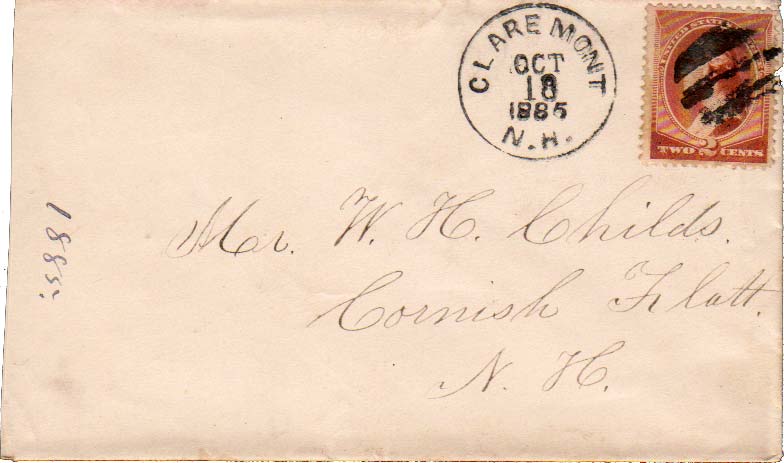 CLAREMONT
OCT
18
1885
N.H.
UNITED STATES
TWO 2 CENTS
Mr. W. H. Childs.
Cornish Flatt.
N. H.
1885